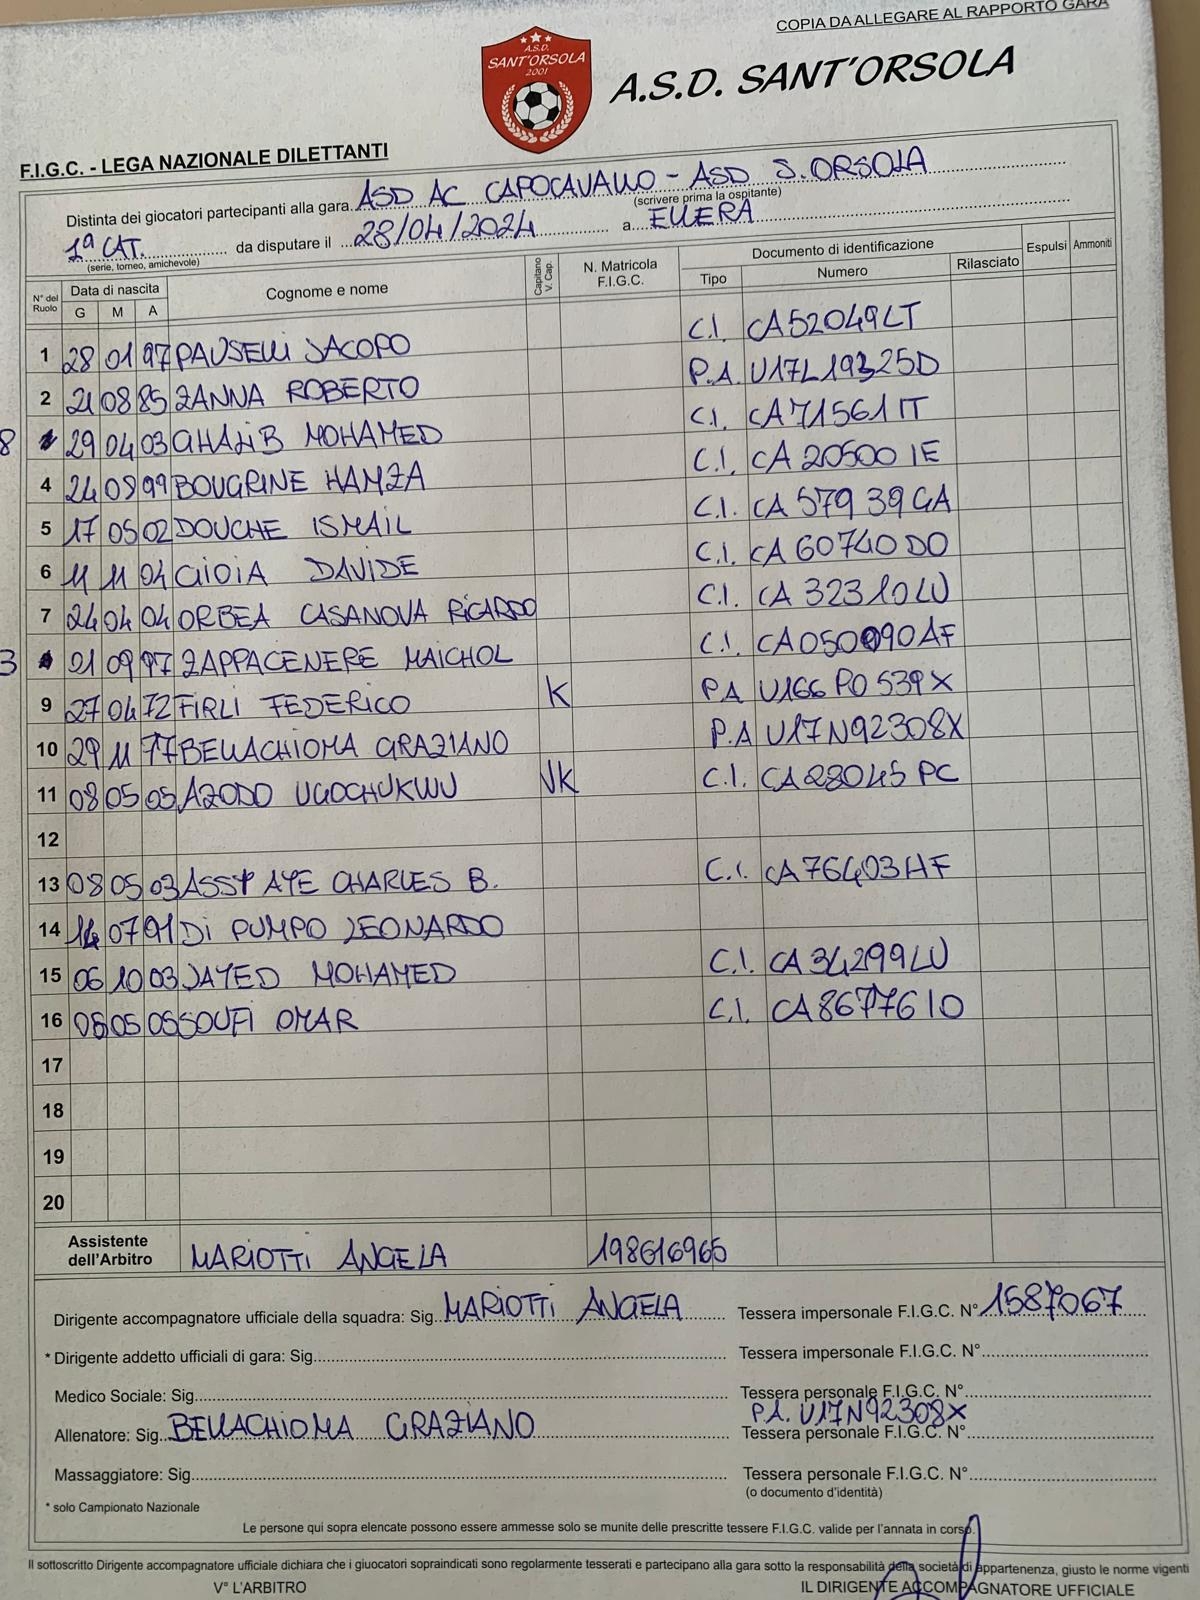 COPIA DA ALLEGARE AL RAPPORTO GARA
A.S.D.
SANT'ORSOLA
2001
A.S.D. SANT'ORSOLA
F.I.G.C. - LEGA NAZIONALE DILETTANTI
Distinta dei giocatori partecipanti alla gara ASD AC CAPOCAVALLO - ASD S. ORSOLA
(scrivere prima la ospitante)
1ª CAT. da disputare il 28/04/2024 a ELLERA
(serie, torneo, amichevole)
N° del Ruolo Data di nascita G M A Cognome e nome Capitano V. Cap. N. Matricola F.I.G.C. Documento di identificazione Tipo Numero Rilasciato Espulsi Ammoniti
1 28 01 97 PAUSELLI JACOPO C.I. CA52049LT
2 21 08 85 ZANNA ROBERTO P.A. U17L19325D
8 29 04 03 GHALIB MOHAMED C.I. CA71561IT
4 24 08 99 BOUGRINE HAMZA C.I. CA 20500 IE
5 17 05 02 DOUCHE ISMAIL C.I. CA 579 39 GA
6 11 11 04 GIOIA DAVIDE C.I. CA 60740 DO
7 24 04 04 ORBEA CASANOVA RICARDO C.I. CA 32310LU
3 01 09 97 ZAPPACENERE MAICHOL C.I. CA050090AF
9 27 04 72 FIRLI FEDERICO K PA U166 PO 539X
10 29 11 77 BELLACHIOMA GRAZIANO P.A U17N92308X
11 08 05 05 AZODO UGOCHUKWU VK C.I. CA28045 PC
12
13 08 05 03 AYE CHARLES B. C.I. CA76403HF
14 14 07 91 DI PUMPO LEONARDO
15 06 10 03 JAYED MOHAMED C.I. CA34299LU
16 05 05 SOUFI OMAR C.I. CA86776IO
17
18
19
20
Assistente dell'Arbitro MARIOTTI ANGELA 198616965
Dirigente accompagnatore ufficiale della squadra: Sig. MARIOTTI ANGELA Tessera impersonale F.I.G.C. N° 1587067
* Dirigente addetto ufficiali di gara: Sig. Tessera impersonale F.I.G.C. N°
Medico Sociale: Sig. Tessera personale F.I.G.C. N°
P.A. U17N92308X
Allenatore: Sig. BELLACHIOMA GRAZIANO Tessera personale F.I.G.C. N°
Massaggiatore: Sig. Tessera personale F.I.G.C. N°
(o documento d'identità)
* solo Campionato Nazionale
Le persone qui sopra elencate possono essere ammesse solo se munite delle prescritte tessere F.I.G.C. valide per l'annata in corso.
Il sottoscritto Dirigente accompagnatore ufficiale dichiara che i giuocatori sopraindicati sono regolarmente tesserati e partecipano alla gara sotto la responsabilità della società di appartenenza, giusto le norme vigenti
V° L'ARBITRO IL DIRIGENTE ACCOMPAGNATORE UFFICIALE